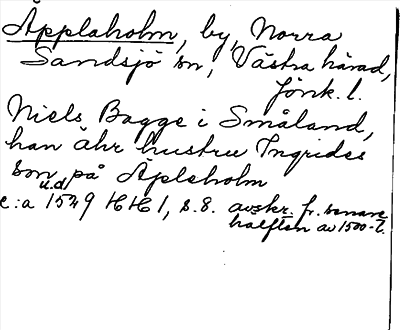 Äpplaholm, by, Norra
Sandsjö sn, Västra härad,
Jönk. l.
Niels Bagge i Småland,
han ähr hustru Ingrides
son på Äpleholm
u.d.
c:a 1549 HH 1, s. 8. avskr. fr. senare
hälften av 1500-t.